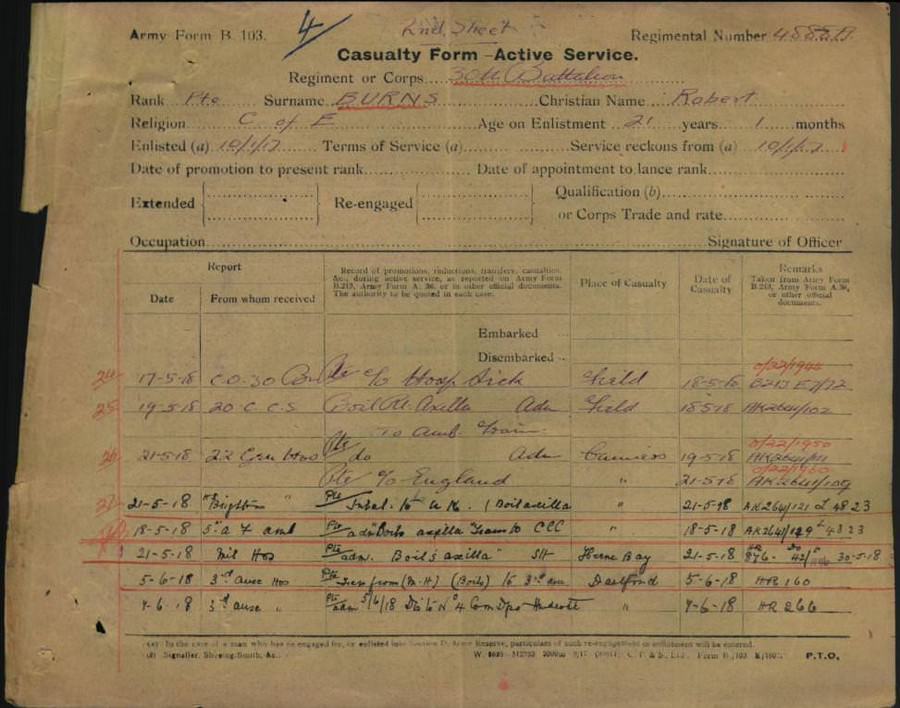 Army Form B. 103. 4 2nd Sheet Regimental Number
Casualty Form - Active Service.
Regiment or Corps 30th Battalion
Rank Pte Surname BURNS Christian Name Robert
Religion C of E Age on Enlistment 21 years 1 months
Enlisted (a) 10/1/17 Terms of Service (a) Service reckons from (a) 10/1/17
Date of promotion to present rank Date of appointment to lance rank
Extended Re-engaged Qualification (b)
or Corps Trade and rate
Occupation Signature of Officer
Report
Date From whom received
Record of promotions, reductions, transfers, casualties,
&c., during active service, as reported on Army Form
B.213, Army Form A. 36, or in other official documents.
The authority to be quoted in each case.
Place of Casualty
Date of Casualty
Remarks
Taken from Army Form
B.213, Army Form A.36,
or other official
documents.
Embarked
Disembarked
17-5-18 C.O. 30 Pte to Hosp Sick Field 18-5-18
19-5-18 20 C C S Boil Rt. Axilla Adm Field 18-5-18 AK2641/102
To Amb. Train
21-5-18 22 Gen Hos Pte do Adm Camiers 19-5-18
Pte to England " 21-5-18 AK2641/109
21-5-18 " Pte to U K. (Boil axilla " 21-5-18 AK2641/121 4823
18-5-18 5th A F Amb Pte adm Boils axilla Trans to CCC " 18-5-18 AK2641/129 4823
21-5-18 Mil Hos Pte adm. Boils axilla Slt Herne Bay 21-5-18 30-5-18
5-6-18 3rd Ausc Hos Pte from (M.H) (Boils) to 3rd Aus Dartford 5-6-18 HR 160
7-6-18 3rd Ausc " Pte adm 5/6/18 Dis to No 4 Com Dpo " 7-6-18 HR 266
(a) In the case of a man who has re-engaged for, or enlisted into Section D. Army Reserve, particulars of such re-engagement or enlistment will be entered.
(b) Signaller, Shoeing-Smith, &c. P.T.O.